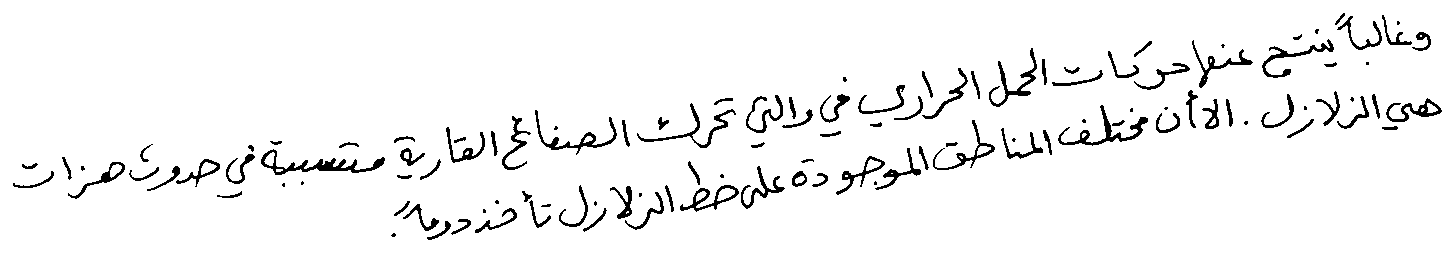 وغالباً ينتج عنها حركات الحمل الحراري في والتي تحرك الصفائح القارية متسببة في حدوث هزات
هي الزلازل . الا أن مختلف المناطق الموجودة على خط الزلازل تأخذ دوماً .